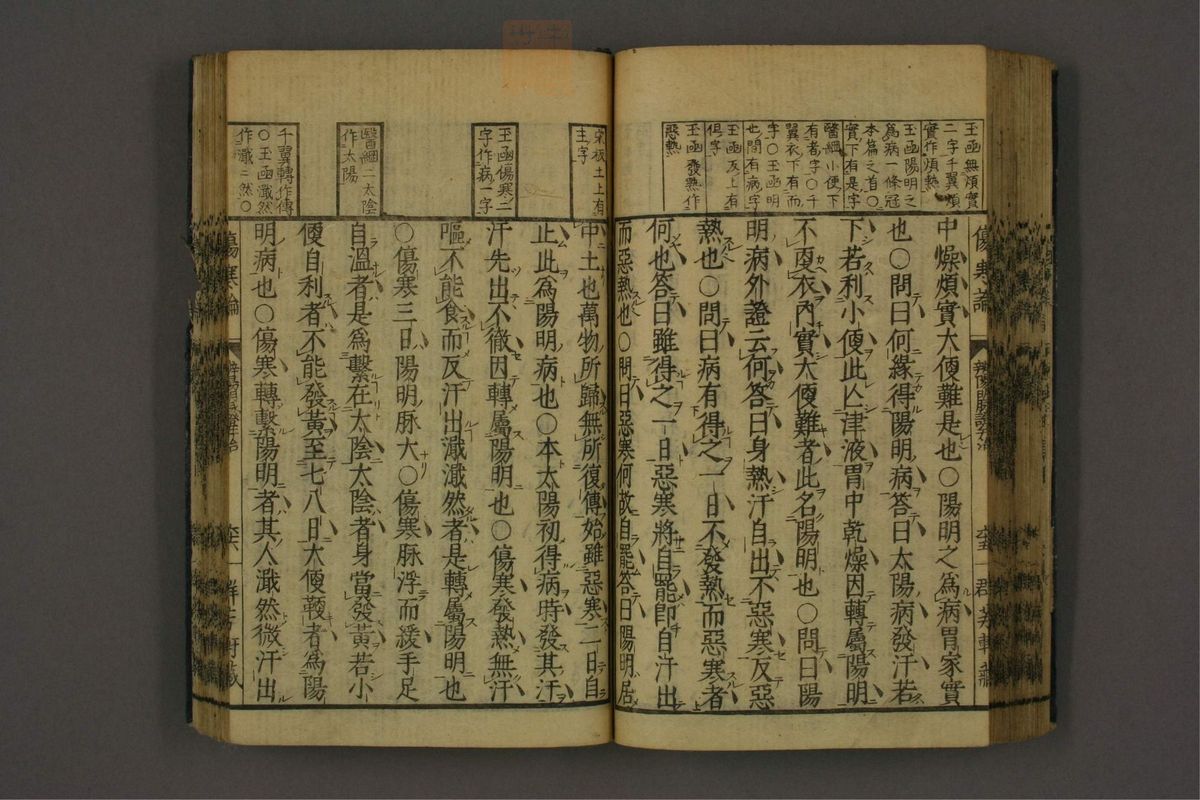 玉函無煩實
二字千翼煩
實作煩熱
玉函陽明之
為病一條冠
本篇之首○
實下有是字
醫綱小便下
有者字○千
翼衣下有而
字○玉函明
也問有病字
玉函反上有
俱字
玉函發熱作
惡熱
傷寒論
中燥煩實大便難是也○陽明之為病胃家實
也○問曰何緣得陽明病答曰太陽病發汗若
下若利小便此亾津液胃中乾燥因轉屬陽明
不更衣內實大便難者此名陽明也○問曰陽
明病外證云何答曰身熱汗自出不惡寒反惡
熱也○問曰病有得之一日不發熱而惡寒者
何也答曰雖得之一日惡寒將自罷卽自汗出
而惡熱也○問曰惡寒何故自罷答曰陽明居
宋板土上有
主字
玉函傷寒二
字作病一字
醫綱二太陰
作太陽
千翼轉作傳
○玉函濈然
作濈濈然○
中土也萬物所歸無所復傳始雖惡寒二日自
止此為陽明病也○本太陽初得病時發其汗
汗先出不徹因轉屬陽明也○傷寒發熱無汗
嘔不能食而反汗出濈濈然者是轉屬陽明也
○傷寒三日陽明脉大○傷寒脉浮而緩手足
自溫者是為繫在太陰太陰者身當發黃若小
便自利者不能發黃至七八日大便鞕者為陽
明病也○傷寒轉繫陽明者其人濈然微汗出
傷寒論